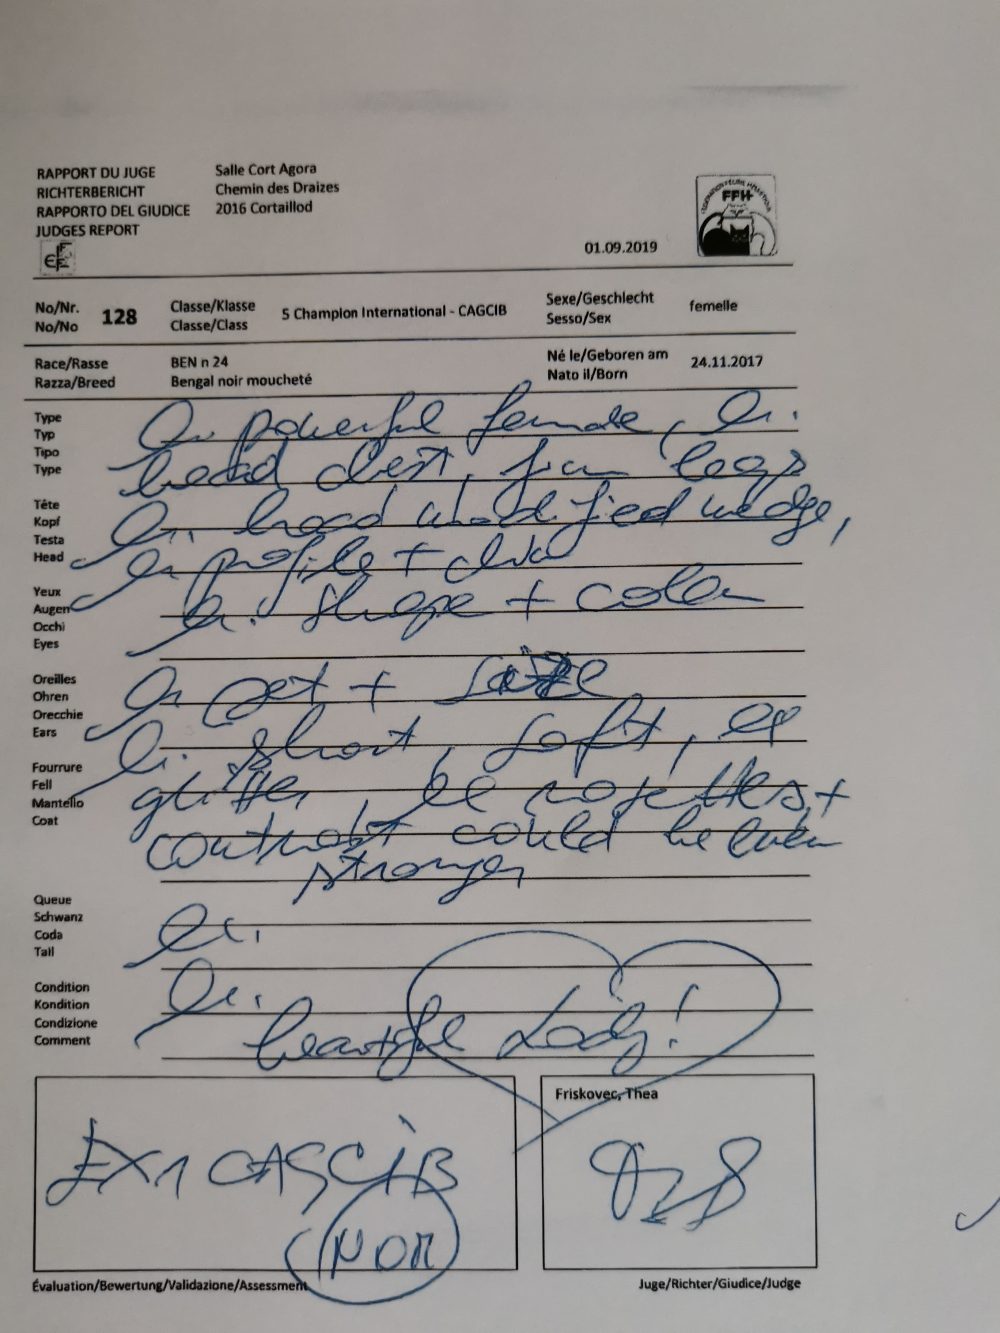 RAPPORT DU JUGE
RICHTERBERICHT
RAPPORTO DEL GIUDICE
JUDGES REPORT
Salle Cort Agora
Chemin des Draizes
2016 Cortaillod
FFH
01.09.2019
No/Nr.
No/No
128
Classe/Klasse
Classe/Class
5 Champion International - CAGCIB
Sexe/Geschlecht
Sesso/Sex
femelle
Race/Rasse
Razza/Breed
BEN n 24
Bengal noir moucheté
Né le/Geboren am
Nato il/Born
24.11.2017
Type
Typ
Tipo
Type
powerful female,
chest, legs
Tête
Kopf
Testa
Head
modified wedge,
profile + chin
Yeux
Augen
Occhi
Eyes
shape +
Oreilles
Ohren
Orecchie
Ears
set + size
Fourrure
Fell
Mantello
Coat
short, soft,
glitter, rosettes +
contrast could be even
stronger
Queue
Schwanz
Coda
Tail
Condition
Kondition
Condizione
Comment
beautiful Lady!
EX1 CAGCIB
NOM
Évaluation/Bewertung/Validazione/Assessment
Friskovec, Thea
Juge/Richter/Giudice/Judge